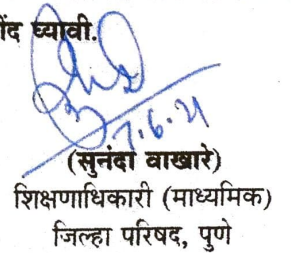 ोंद घ्यावी.
7.6.21
(सुनंदा वाखारे)
शिक्षणाधिकारी (माध्यमिक)
जिल्हा परिषद, पुणे